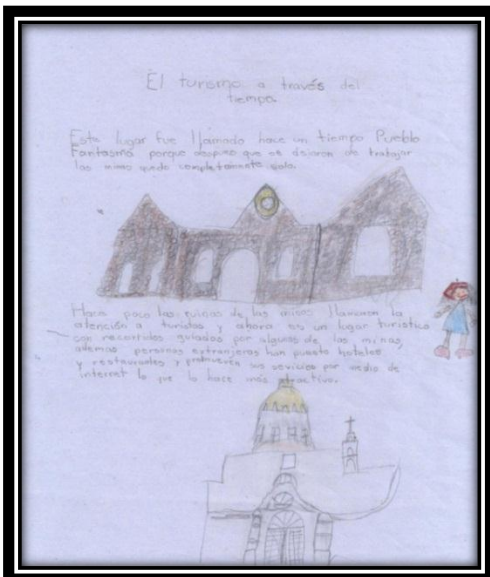 El turismo a través del
tiempo.
Este lugar fue llamado hace un tiempo Pueblo
Fantasma porque despues que se dejaron de trabajar
las minas quedo completamente solo.
Hace poco las ruinas de las minas llamaron la
atención a turistas y ahora es un lugar turistico
con recorridos guiados por algunas de las minas,
ademas personas extranjeras han puesto hoteles
y restaurantes y promueven sus servicios por medio de
internet lo que lo hace más atractivo.